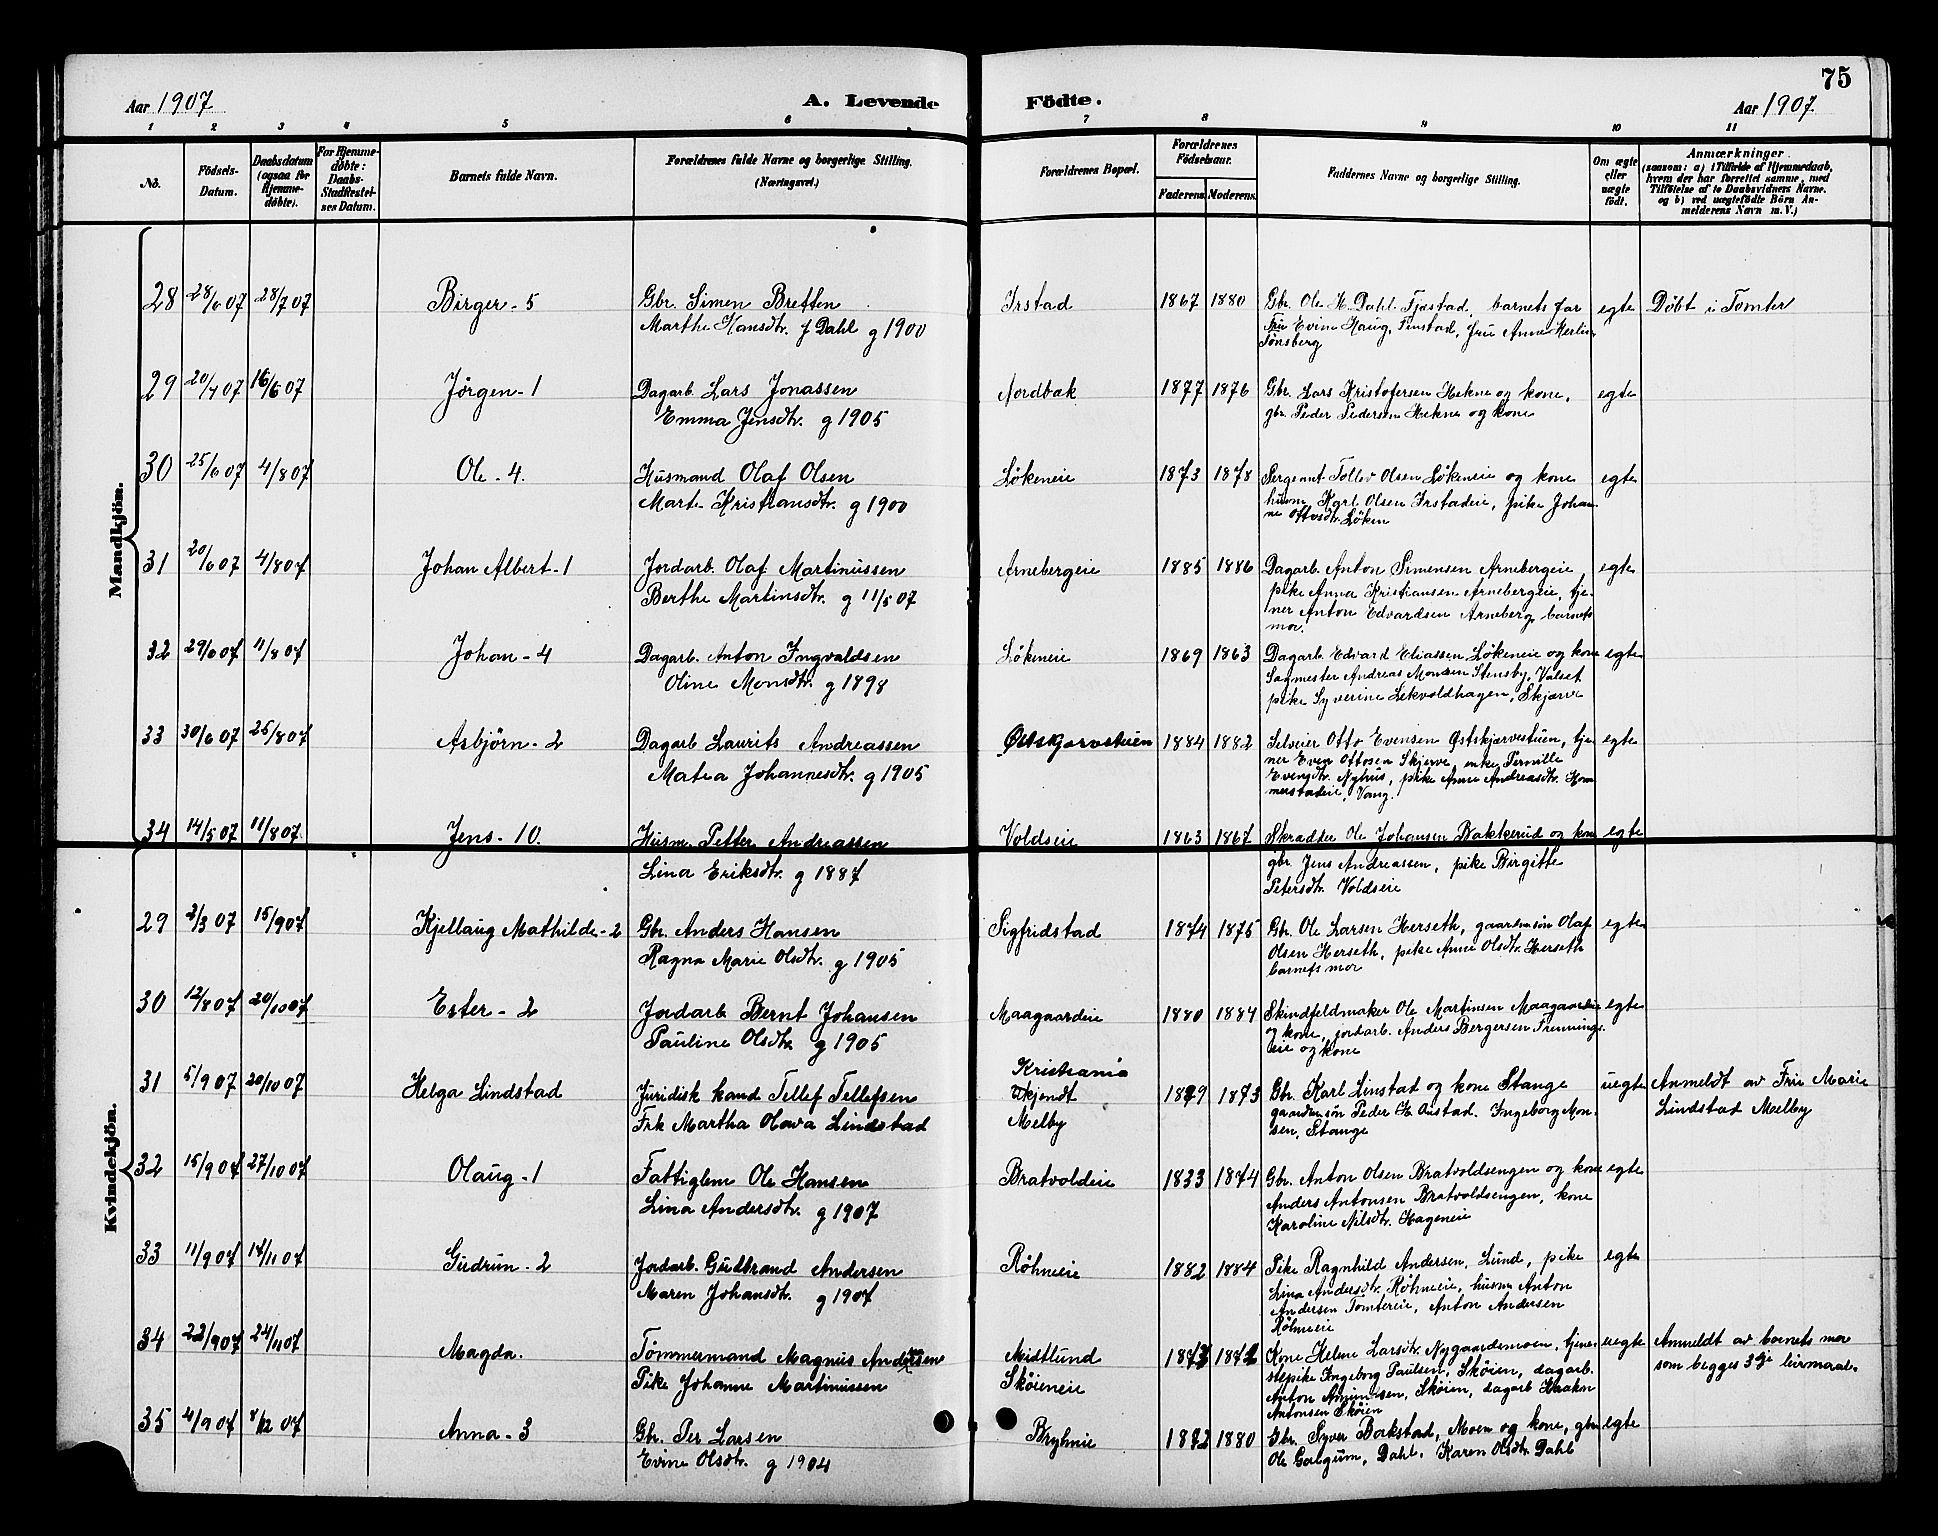 75
Aar 1907
A. Levende Födte.
Aar 1907.
1 2 3 4 5 6 7 8 9 10 11
No.
Födsels-Datum.
Daabsdatum (ogsaa for Hjemme-döbte).
For Hjemme-döbte: Daabs-Stadfæstel-ses Datum.
Barnets fulde Navn.
Forældrenes fulde Navne og borgerlige Stilling.
(Næringsvei.)
Forældrenes Bopæl.
Forældrenes Födselsaar.
Faderens. Moderens.
Faddernes Navne og borgerlige Stilling.
Om ægte eller uægte födt.
Anmærkninger
(saasom: a) i Tilfælde af Hjemmedaab,
hvem der har forrettet samme, med
Tilföielse af to Daabsvidners Navne.
og b) ved uægtefödte Börn An-
melderens Navn m. V.)
Mandkjön.
28 28/6 07 28/7 07 Birger - 5 Gbr. Simen Bretten Irstad 1867 1880 Gbr. Ole H. Dahl Fjæstad, barnets far egte Døbt i Tomter
Marthe Hansdtr. f Dahl g 1900 Fru Evine Haug, Finstad, fru Anne Herlin
Tønsberg
29 20/4 07 16/6 07 Jørgen - 1 Dagarb. Lars Jonassen Nordbak 1877 1876 Gbr. Lars Kristofersen Hekne og kone, egte
Emma Jensdtr. g 1905 gbr. Peder Pedersen Hekne og kone
30 25/6 07 4/8 07 Ole - 4. Husmand Olaf Olsen Løkeneie 1873 1878 Sergeant Tollev Olsen Løkeneie og kone egte
Marte Kristiansdtr. g 1900 husm. Karl Olsen Irstadeie, pike Johan-
ne Ottosdtr. Løken
31 20/6 07 4/8 07 Johan Albert - 1 Jordarb. Olaf Martinussen Arnebergeie 1885 1886 Dagarb. Anton Simensen Arnebergeie egte
Berthe Martinsdtr. g 11/5 07 pike Anna Kristiansen Arnebergeie, tje-
ner Anton Edvardsen Arneberg, barnets
mor.
32 29/6 07 11/8 07 Johan - 4 Dagarb. Anton Ingvaldsen Løkeneie 1869 1863 Dagarb. Edvard Eliassen Løkeneie og kone egte
Oline Monsdtr. g 1898 Sagmester Andreas Monsen Stensby, Valset
pike Syverine Lekvoldhagen, Skjærve
33 30/6 07 25/8 07 Asbjörn - 2 Dagarb Laurits Andreassen Østskjærvestuen 1884 1882 Selveier Otto Evensen Østskjærvestuen, tje- egte
Matea Johannesdtr. g 1905 ner Even Ottosen Skjerve, enke Pernille
Evensdtr. Nyhus, pike Anne Andreasdtr. Hom-
merstadeie, Vang.
34 14/5 07 11/8 07. Jens - 10. Husm. Petter Andreassen Voldseie 1863 1867 Skrædder Ole Johansen Bakkerud og kone egte
Lina Eriksdtr. g 1887 gbr. Jens Andreassen, pike Birgitte
Petersdtr. Voldseie
Kvindekjön.
29 2/3 07 15/9 07 Kjellaug Mathilde - 2 Gbr. Anders Hansen Sigfridstad 1874 1875 Gbr. Ole Larsen Herseth, gaardmsøn Olaf egte
Ragna Marie Olsdtr. g 1905 Olsen Herseth, pike Anne Olsdtr. Herseth
barnets mor
30 12/8 07 20/10 07 Ester - 2 Jordarb Bernt Johansen Maagaardeie 1880 1884 Skindfeldmaker Ole Martinsen Maagaardeie egte
Pauline Olsdtr. g 1905 og kone, jordarb. Anders Bergersen Frennings-
eie og kone
31 5/9 07 20/10 07 Helga Lindstad Juridisk kand Tellef Tellefsen Kristiania Ukjendt 1879 1873 Gbr. Karl Linstat og kone Stange uegte Anmeldt av Fru Marie
Frk Martha Olowa Lindstad Melby gaardmsøn Peder H. Onstad. Ingeborg Mon- Lindstad Melby
sen, Stange
32 15/9 07 27/10 07 Olaug - 1 Fattiglem Ole Hansen Bratvoldeie 1833 1874 Gbr. Anton Olsen Bratvoldsengen og kone egte
Lina Andersdtr. g 1907 Anders Antonsen Bratvoldsengen, kone
Karoline Nilsdtr. Hageneie
33 11/9 07 17/11 07 Gudrun - 2 Jordarb. Gudbrand Andersen Røhneie 1882 1884 Pike Ragnhild Andersen, Lund, pike egte
Maren Johansdtr. g 1907 Lina Andersdtr. Røhneie, husm Anton
Andersen Tomtereie, Anton Andersen
Røhneie
34 22/9 07 24/11 07 Magda. Tømmermand Magnus Andersen Midtlund 1873 1872 Kone Helene Larsdtr. Nygaardsmoen, tjene- uegte Anmeldt av barnets mor
Pike Johanne Martinussen Skøieneie stepike Ingeborg Paulsen, Skøien, dagarb. som begges 3dje leirmaal.
Anton Amundsen, Skøien, dagarb Haakn
Antonsen Skøien
35 4/9 07 8/12 07 Anna - 3 Gbr. Per Larsen Bryhnie 1872 1880 Gbr. Syver Bakstad, Moen og kone, gbr egte
Evine Olsdtr. g 1904 Ole Galgum, Dahl, Karen Olsdtr. Dahl